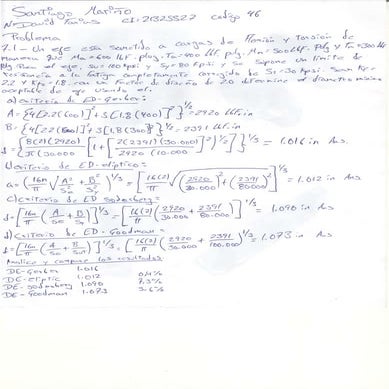 Santiago Mariño
N: David CI: 21325527 codigo 46
Problema
7.1 - Un eje esta sometido a cargas de flexión y torsión de
manera que Ma = 600 lbf. plg, Ta = 400 lbf. plg, Mm = 500 lbf. plg y Tm = 300 lbf
plg. Para el eje, Sut = 100 kpsi y Sy = 80 kpsi y se supone un limite de
resistencia a la fatiga completamente corregido de Se = 30 kpsi. sean Kf =
2.2 y Kfs = 1.8. con un factor de diseño de 2.0 determine el diametro minimo
aceptable de eje usando el.
a) criterio de ED-Gerber:
A = {4[2.2(600)]² + 3[1.8(400)]²}^1/2 = 2920 lbf.in
B = {4[2.2(500)]² + 3[1.8(300)]²}^1/2 = 2391 lbf.in
d = {8(2)(2920)/π(30.000) [1 + [1 + (2(2391)(30.000)/2920(100.000))²]^1/2]}^1/3 = 1.016 in Ans.
b) criterio de ED-eliptico:
d = (16n/π √(A²/Se² + B²/Sy²))^1/3 = [16(2)/π √((2920/30.000)² + (2391/80.000)²)]^1/3 = 1.012 in Ans
c) criterio de ED Soderberg:
d = [16n/π (A/Se + B/Sy)]^1/3 = [16(2)/π (2920/30.000 + 2391/80.000)]^1/3 = 1.090 in Ans
d) criterio de ED-Goodman:
d = [16n/π (A/Se + B/Sut)]^1/3 = [16(2)/π (2920/30.000 + 2391/100.000)]^1/3 = 1.073 in Ans
Analice y compare los resultados.
DE-Gerber 1.016
DE-eliptic 1.012 0.4%
DE-Soderberg 1.090 7.3%
DE-Goodman 1.073 5.6%